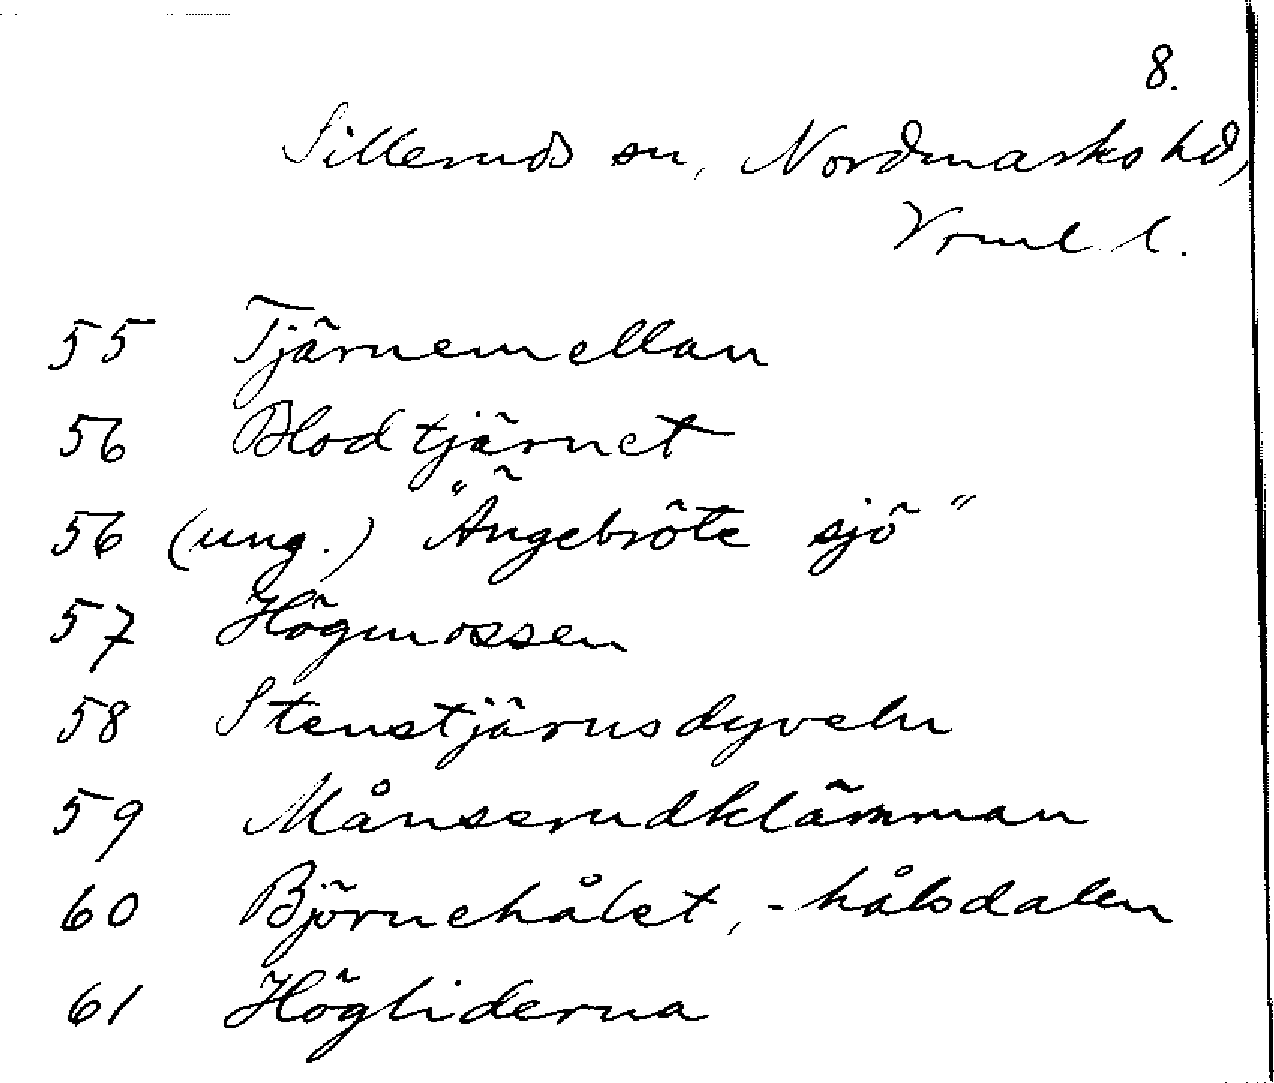 8.
Silleruds sn, Nordmarks hd,
Vrml. l.
55 Tjärnemellan
56 Blodtjärnet
56 (ung.) "Ängebröte sjö"
57 Högmossen
58 Stenstjärnsdyveln
59 Månserudklämman
60 Björnehålet, -hålsdalen
61 Högliderna